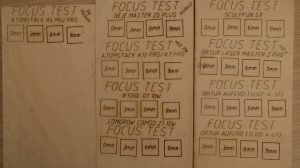 FOCUS TEST
ATOMSTACK A5 M50 PRO
0mm 3mm 6mm 9mm
FOCUS TEST
NEJE MASTER 2S PLUS
0mm 3mm 6mm 9mm
FOCUS TEST
ATOMSTACK A10 PRO/X7 PRO
0mm 3mm 6mm 9mm
FOCUS TEST
XTOOL D1 10W
0mm 3mm 6mm 9mm
COMGROW COMGO Z1 10W
FOCUS TEST
0mm 3mm 6mm 9mm
FOCUS TEST
SCULPFUN S9
0mm 3mm 6mm 9mm
FOCUS TEST
ORTUR LASER MASTER 2 PRO
0mm 3mm 6mm 9mm
FOCUS TEST
ORTUR AUFERO 1 LU2-4-LF1
0mm 3mm 6mm 9mm
FOCUS TEST
ORTUR AUFERO 1 LU2-4-SF
0mm 3mm 6mm 9mm